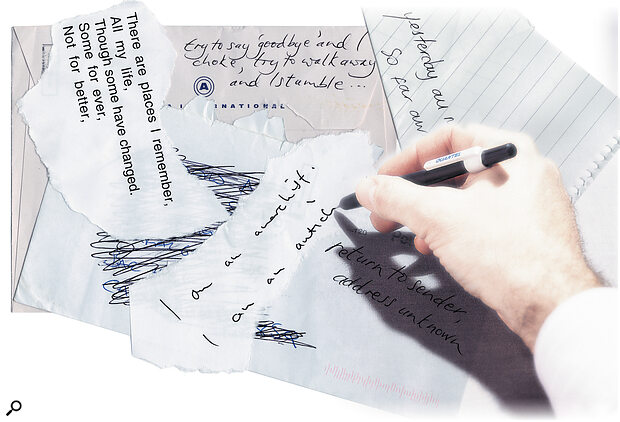 There are places I remember,
All my life,
Though some have changed.
Some for ever,
Not for better,
try to say 'goodbye' and I
choke, try to walk away
and I stumble...
A
NATIONAL
yesterday all
So far aw
I am an anarchist.
I am an antich
return to sender,
address unknown